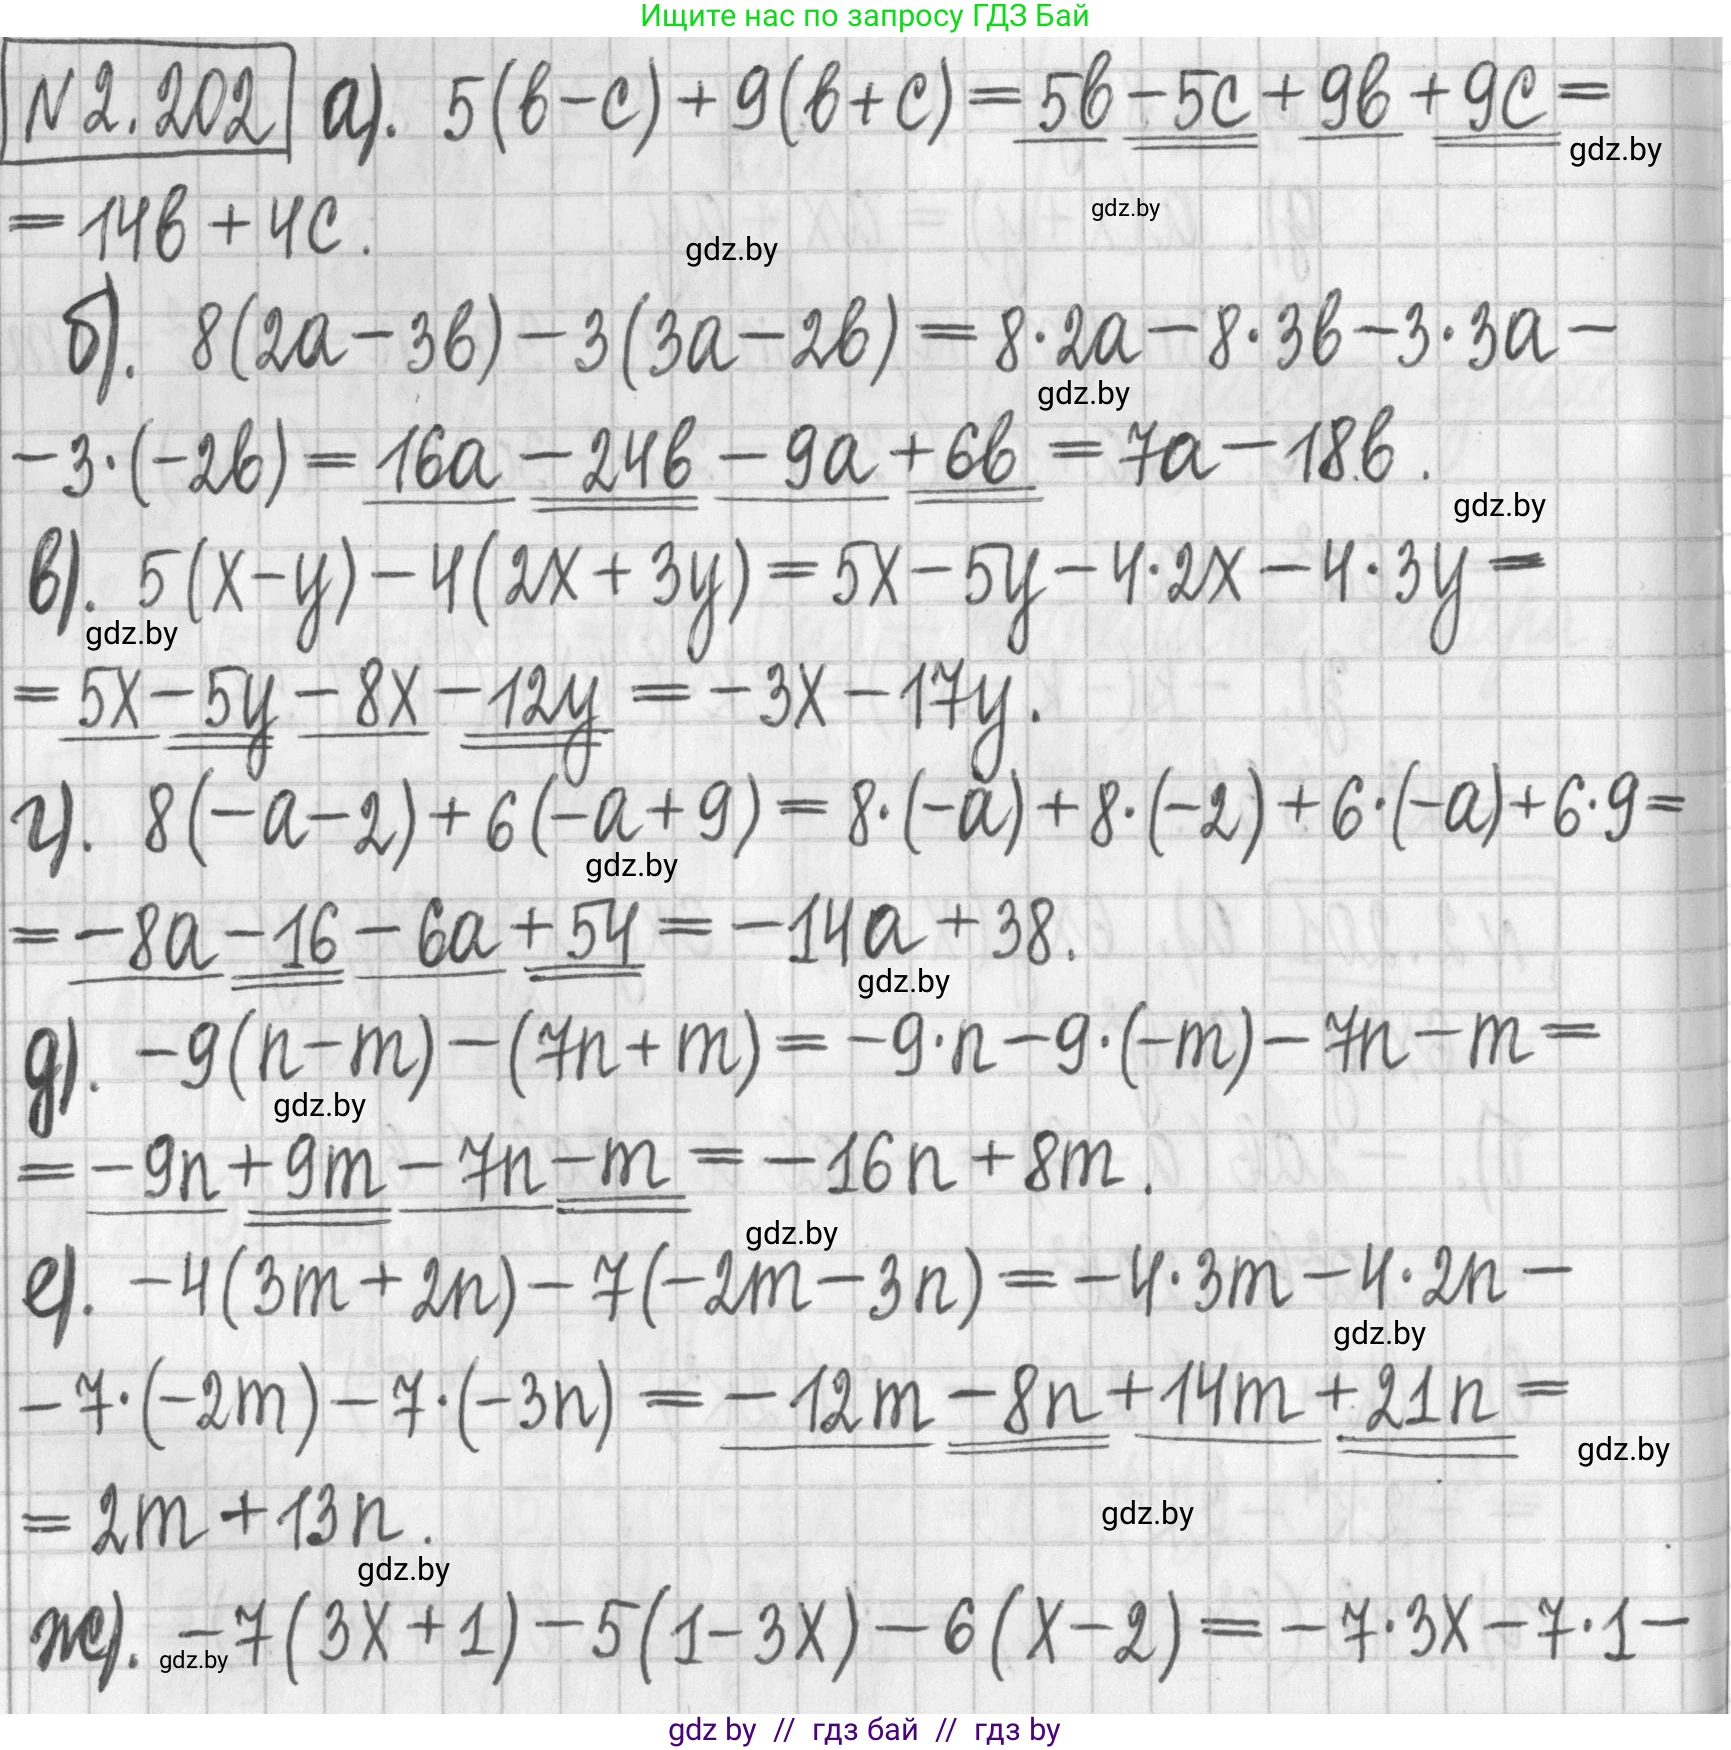 Ищите нас по запросу ГДЗ Бай
N2.202 а). 5(b-c)+9(b+c)=5b-5c+9b+9c=
gdz.by
gdz.by
=14b+4c.
gdz.by
б). 8(2a-3b)-3(3a-2b)=8·2a-8·3b-3·3a-
gdz.by
-3·(-2b)=16a-24b-9a+6b=7a-18b.
gdz.by
в). 5(x-y)-4(2x+3y)=5x-5y-4·2x-4·3y=
gdz.by
=5x-5y-8x-12y=-3x-17y.
г). 8(-a-2)+6(-a+9)=8·(-a)+8·(-2)+6·(-a)+6·9=
gdz.by
=-8a-16-6a+54=-14a+38.
gdz.by
д). -9(n-m)-(7n+m)=-9·n-9·(-m)-7n-m=
gdz.by
=-9n+9m-7n-m=-16n+8m.
gdz.by
е). -4(3m+2n)-7(-2m-3n)=-4·3m-4·2n-
gdz.by
-7·(-2m)-7·(-3n)=-12m-8n+14m+21n=
gdz.by
=2m+13n.
gdz.by
gdz.by
ж). -7(3x+1)-5(1-3x)-6(x-2)=-7·3x-7·1-
gdz.by
gdz by // гдз бай // гдз by